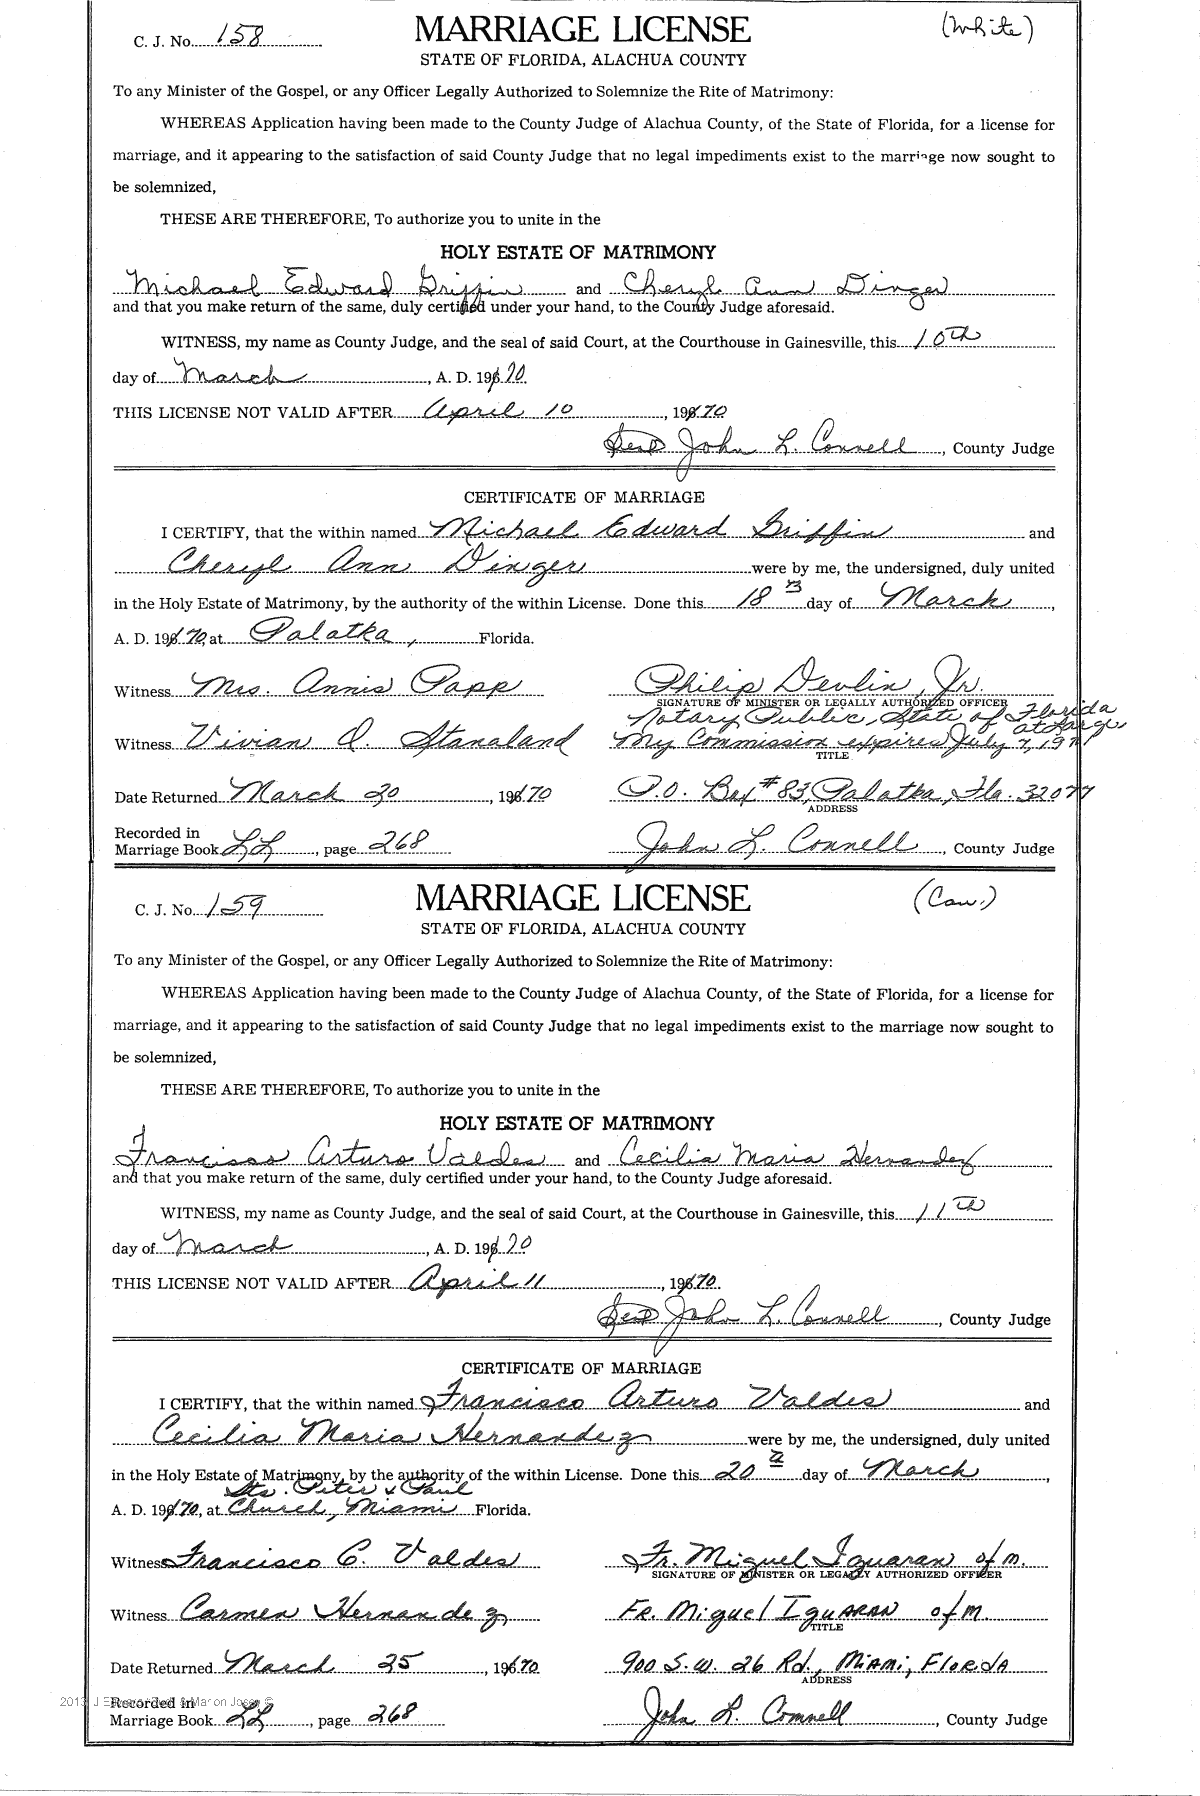 C. J. No. 158 MARRIAGE LICENSE (White)
STATE OF FLORIDA, ALACHUA COUNTY
To any Minister of the Gospel, or any Officer Legally Authorized to Solemnize the Rite of Matrimony:
WHEREAS Application having been made to the County Judge of Alachua County, of the State of Florida, for a license for
marriage, and it appearing to the satisfaction of said County Judge that no legal impediments exist to the marriage now sought to
be solemnized,
THESE ARE THEREFORE, To authorize you to unite in the
HOLY ESTATE OF MATRIMONY
Michael Edward Griffin and Cheryl Ann Dinger
and that you make return of the same, duly certified under your hand, to the County Judge aforesaid.
WITNESS, my name as County Judge, and the seal of said Court, at the Courthouse in Gainesville, this 10th
day of March, A. D. 1970
THIS LICENSE NOT VALID AFTER April 10, 1970
Seal John L. Connell, County Judge
CERTIFICATE OF MARRIAGE
I CERTIFY, that the within named Michael Edward Griffin and
Cheryl Ann Dinger were by me, the undersigned, duly united
in the Holy Estate of Matrimony, by the authority of the within License. Done this 18 day of March,
A. D. 1970, at Palatka, Florida.
Witness Mrs. Annis Papp Philip Devlin, Jr.
SIGNATURE OF MINISTER OR LEGALLY AUTHORIZED OFFICER
Notary Public, State of Florida at Large
Witness Vivian O. Stanaland My Commission expires July 7, 1971
TITLE
Date Returned March 20, 1970 P.O. Box #83, Palatka, Fla. 32077
ADDRESS
Recorded in
Marriage Book LL, page 268 John L. Connell, County Judge
C. J. No. 159 MARRIAGE LICENSE (Cau.)
STATE OF FLORIDA, ALACHUA COUNTY
To any Minister of the Gospel, or any Officer Legally Authorized to Solemnize the Rite of Matrimony:
WHEREAS Application having been made to the County Judge of Alachua County, of the State of Florida, for a license for
marriage, and it appearing to the satisfaction of said County Judge that no legal impediments exist to the marriage now sought to
be solemnized,
THESE ARE THEREFORE, To authorize you to unite in the
HOLY ESTATE OF MATRIMONY
Francisco Arturo Valdes and Cecilia Maria Hernandez
and that you make return of the same, duly certified under your hand, to the County Judge aforesaid.
WITNESS, my name as County Judge, and the seal of said Court, at the Courthouse in Gainesville, this 11th
day of March, A. D. 1970
THIS LICENSE NOT VALID AFTER April 11, 1970
Seal John L. Connell, County Judge
CERTIFICATE OF MARRIAGE
I CERTIFY, that the within named Francisco Arturo Valdes and
Cecilia Maria Hernandez were by me, the undersigned, duly united
in the Holy Estate of Matrimony, by the authority of the within License. Done this 20 day of March,
Sts. Peter & Paul
A. D. 1970, at Church, Miami Florida.
Witness Francisco C. Valdes Fr. Miguel Iguaran ofm.
SIGNATURE OF MINISTER OR LEGALLY AUTHORIZED OFFICER
Witness Carmen Hernandez FR. Miguel IGUARAN ofm.
TITLE
Date Returned March 25, 1970 900 S.W. 26 Rd., MIAMI, FLORIDA
ADDRESS
Recorded in
Marriage Book LL, page 268 John L. Connell, County Judge